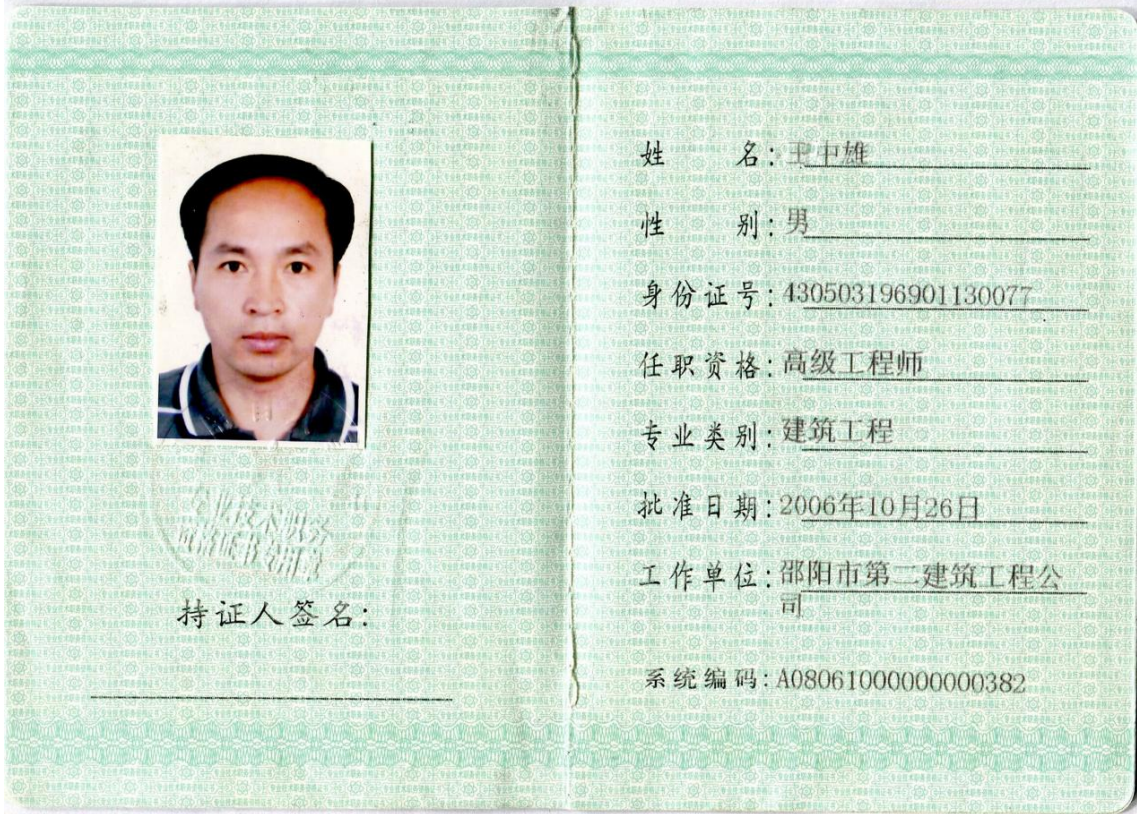 专业技术职务
资格证书专用章
持证人签名：
姓名：王中雄
性别：男
身份证号：430503196901130077
任职资格：高级工程师
专业类别：建筑工程
批准日期：2006年10月26日
工作单位：邵阳市第二建筑工程公
司
系统编码：A08061000000000382